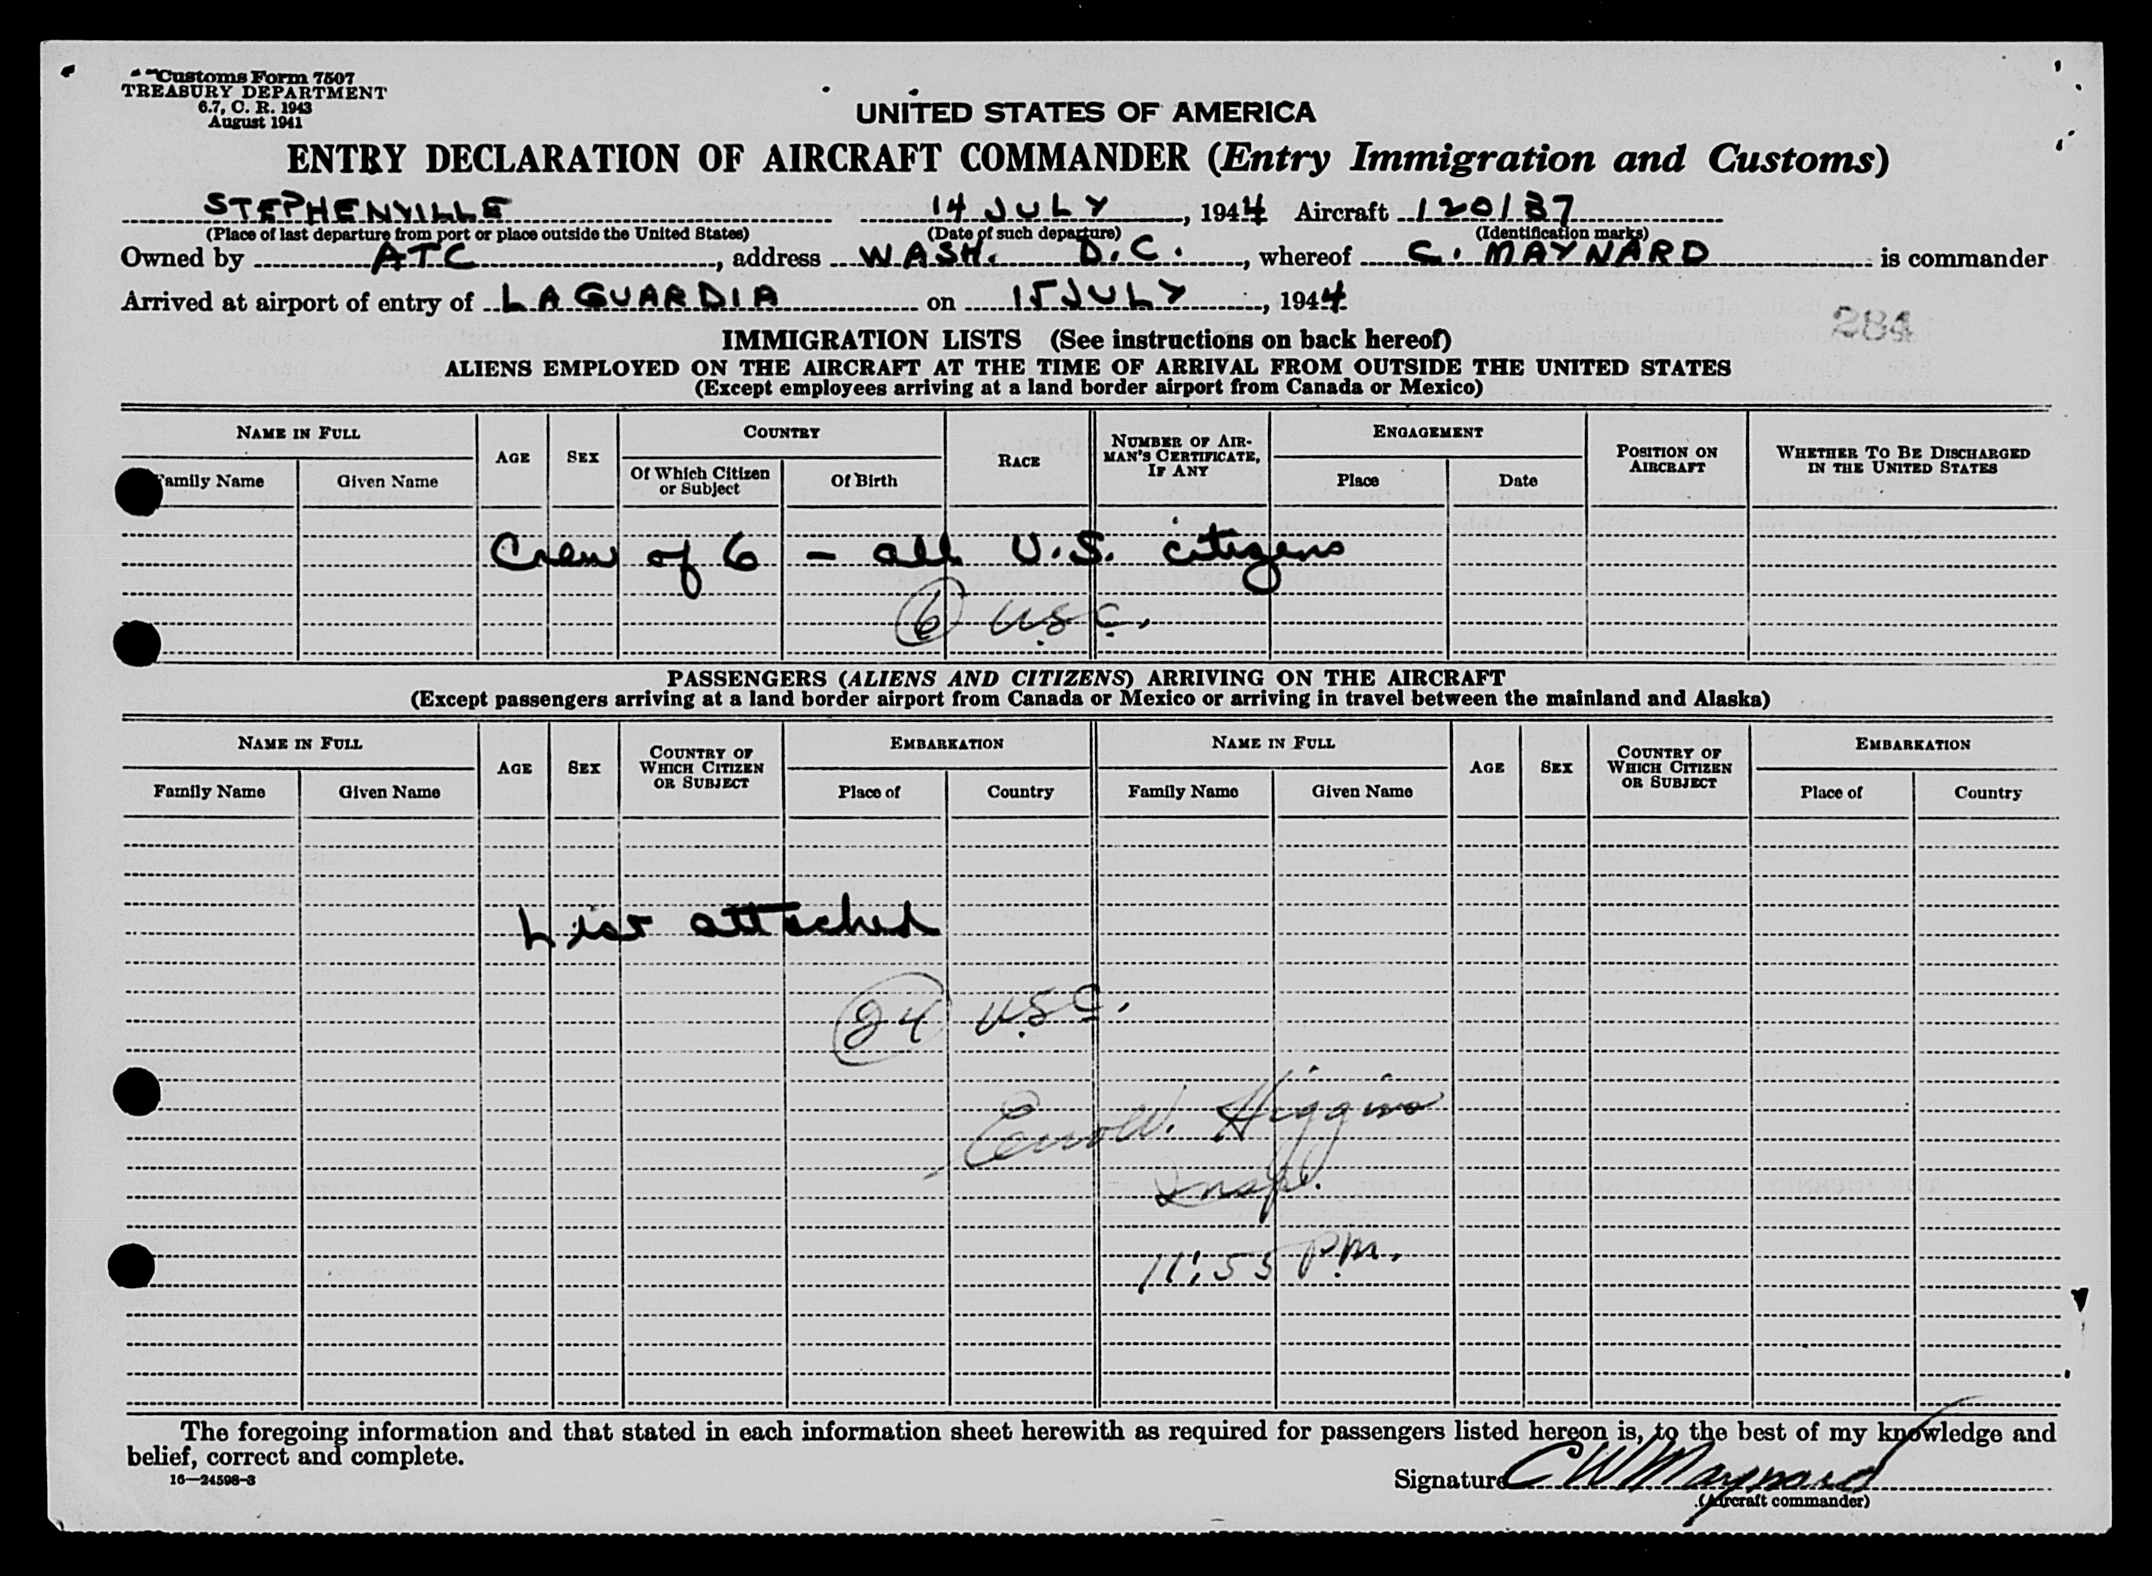 Customs Form 7507
TREASURY DEPARTMENT
6.7, C. R. 1943
August 1941
UNITED STATES OF AMERICA
ENTRY DECLARATION OF AIRCRAFT COMMANDER (Entry Immigration and Customs)
STEPHENVILLE 14 JULY, 1944 Aircraft 120137
(Place of last departure from port or place outside the United States) (Date of such departure) (Identification marks)
Owned by ATC, address WASH. D.C., whereof C. MAYNARD is commander
Arrived at airport of entry of LAGUARDIA on 15 JULY, 1944
284
IMMIGRATION LISTS (See instructions on back hereof)
ALIENS EMPLOYED ON THE AIRCRAFT AT THE TIME OF ARRIVAL FROM OUTSIDE THE UNITED STATES
(Except employees arriving at a land border airport from Canada or Mexico)
NAME IN FULL AGE SEX COUNTRY RACE NUMBER OF AIRMAN'S CERTIFICATE, IF ANY ENGAGEMENT POSITION ON AIRCRAFT WHETHER TO BE DISCHARGED IN THE UNITED STATES
Family Name Given Name Of Which Citizen or Subject Of Birth Place Date
Crew of 6 - all U.S. citizens
6 U.S.C.
PASSENGERS (ALIENS AND CITIZENS) ARRIVING ON THE AIRCRAFT
(Except passengers arriving at a land border airport from Canada or Mexico or arriving in travel between the mainland and Alaska)
NAME IN FULL AGE SEX COUNTRY OF WHICH CITIZEN OR SUBJECT EMBARKATION NAME IN FULL AGE SEX COUNTRY OF WHICH CITIZEN OR SUBJECT EMBARKATION
Family Name Given Name Place of Country Family Name Given Name Place of Country
List attached
24 U.S.C.
Higgins
Insp.
11:55 P.M.
The foregoing information and that stated in each information sheet herewith as required for passengers listed hereon is, to the best of my knowledge and
belief, correct and complete.
16—24598-3
Signature C W Maynard
(Aircraft commander)